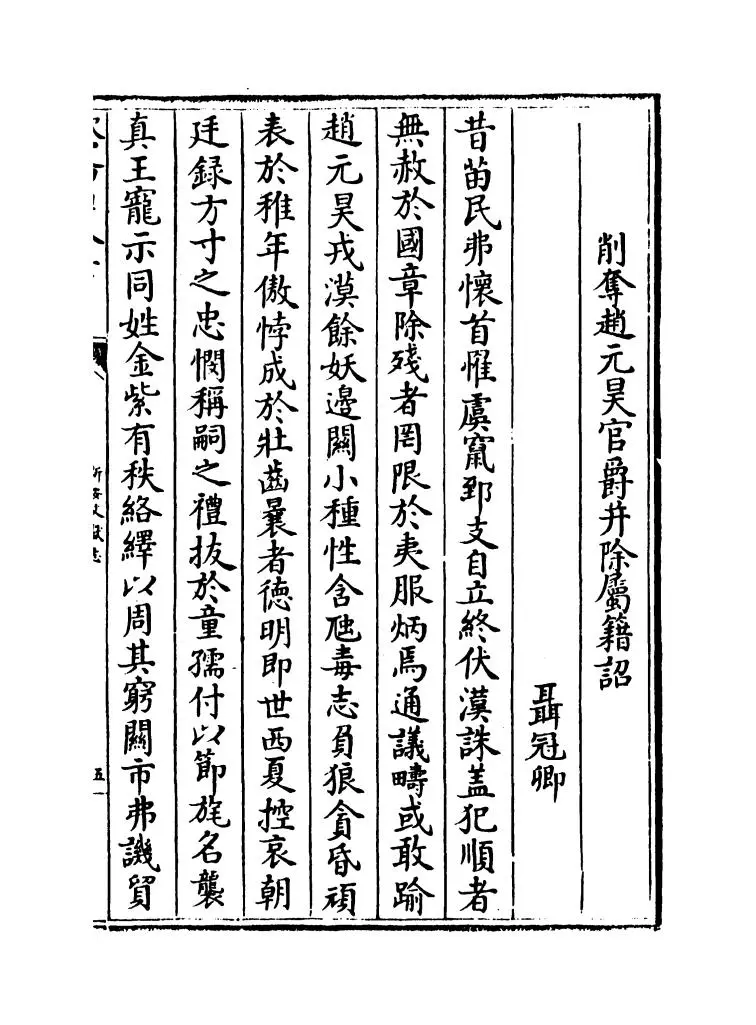 削奪趙元昊官爵并除屬籍詔
聶冠卿
昔苗民弗懷首罹虞竄郅支自立終伏漢誅盖犯順者
無赦於國章除殘者罔限於夷服炳焉通議疇或敢踰
趙元昊戎漠餘妖邊關小種性含虺毒志負狼貪昏頑
表於稚年傲悖成於壯齒曩者徳明即世西夏控哀朝
廷録方寸之忠憫稱嗣之禮拔於童孺付以節旄名襲
真王寵示同姓金紫有秩絡繹以周其窮關市弗譏貿
新安文獻志
五一